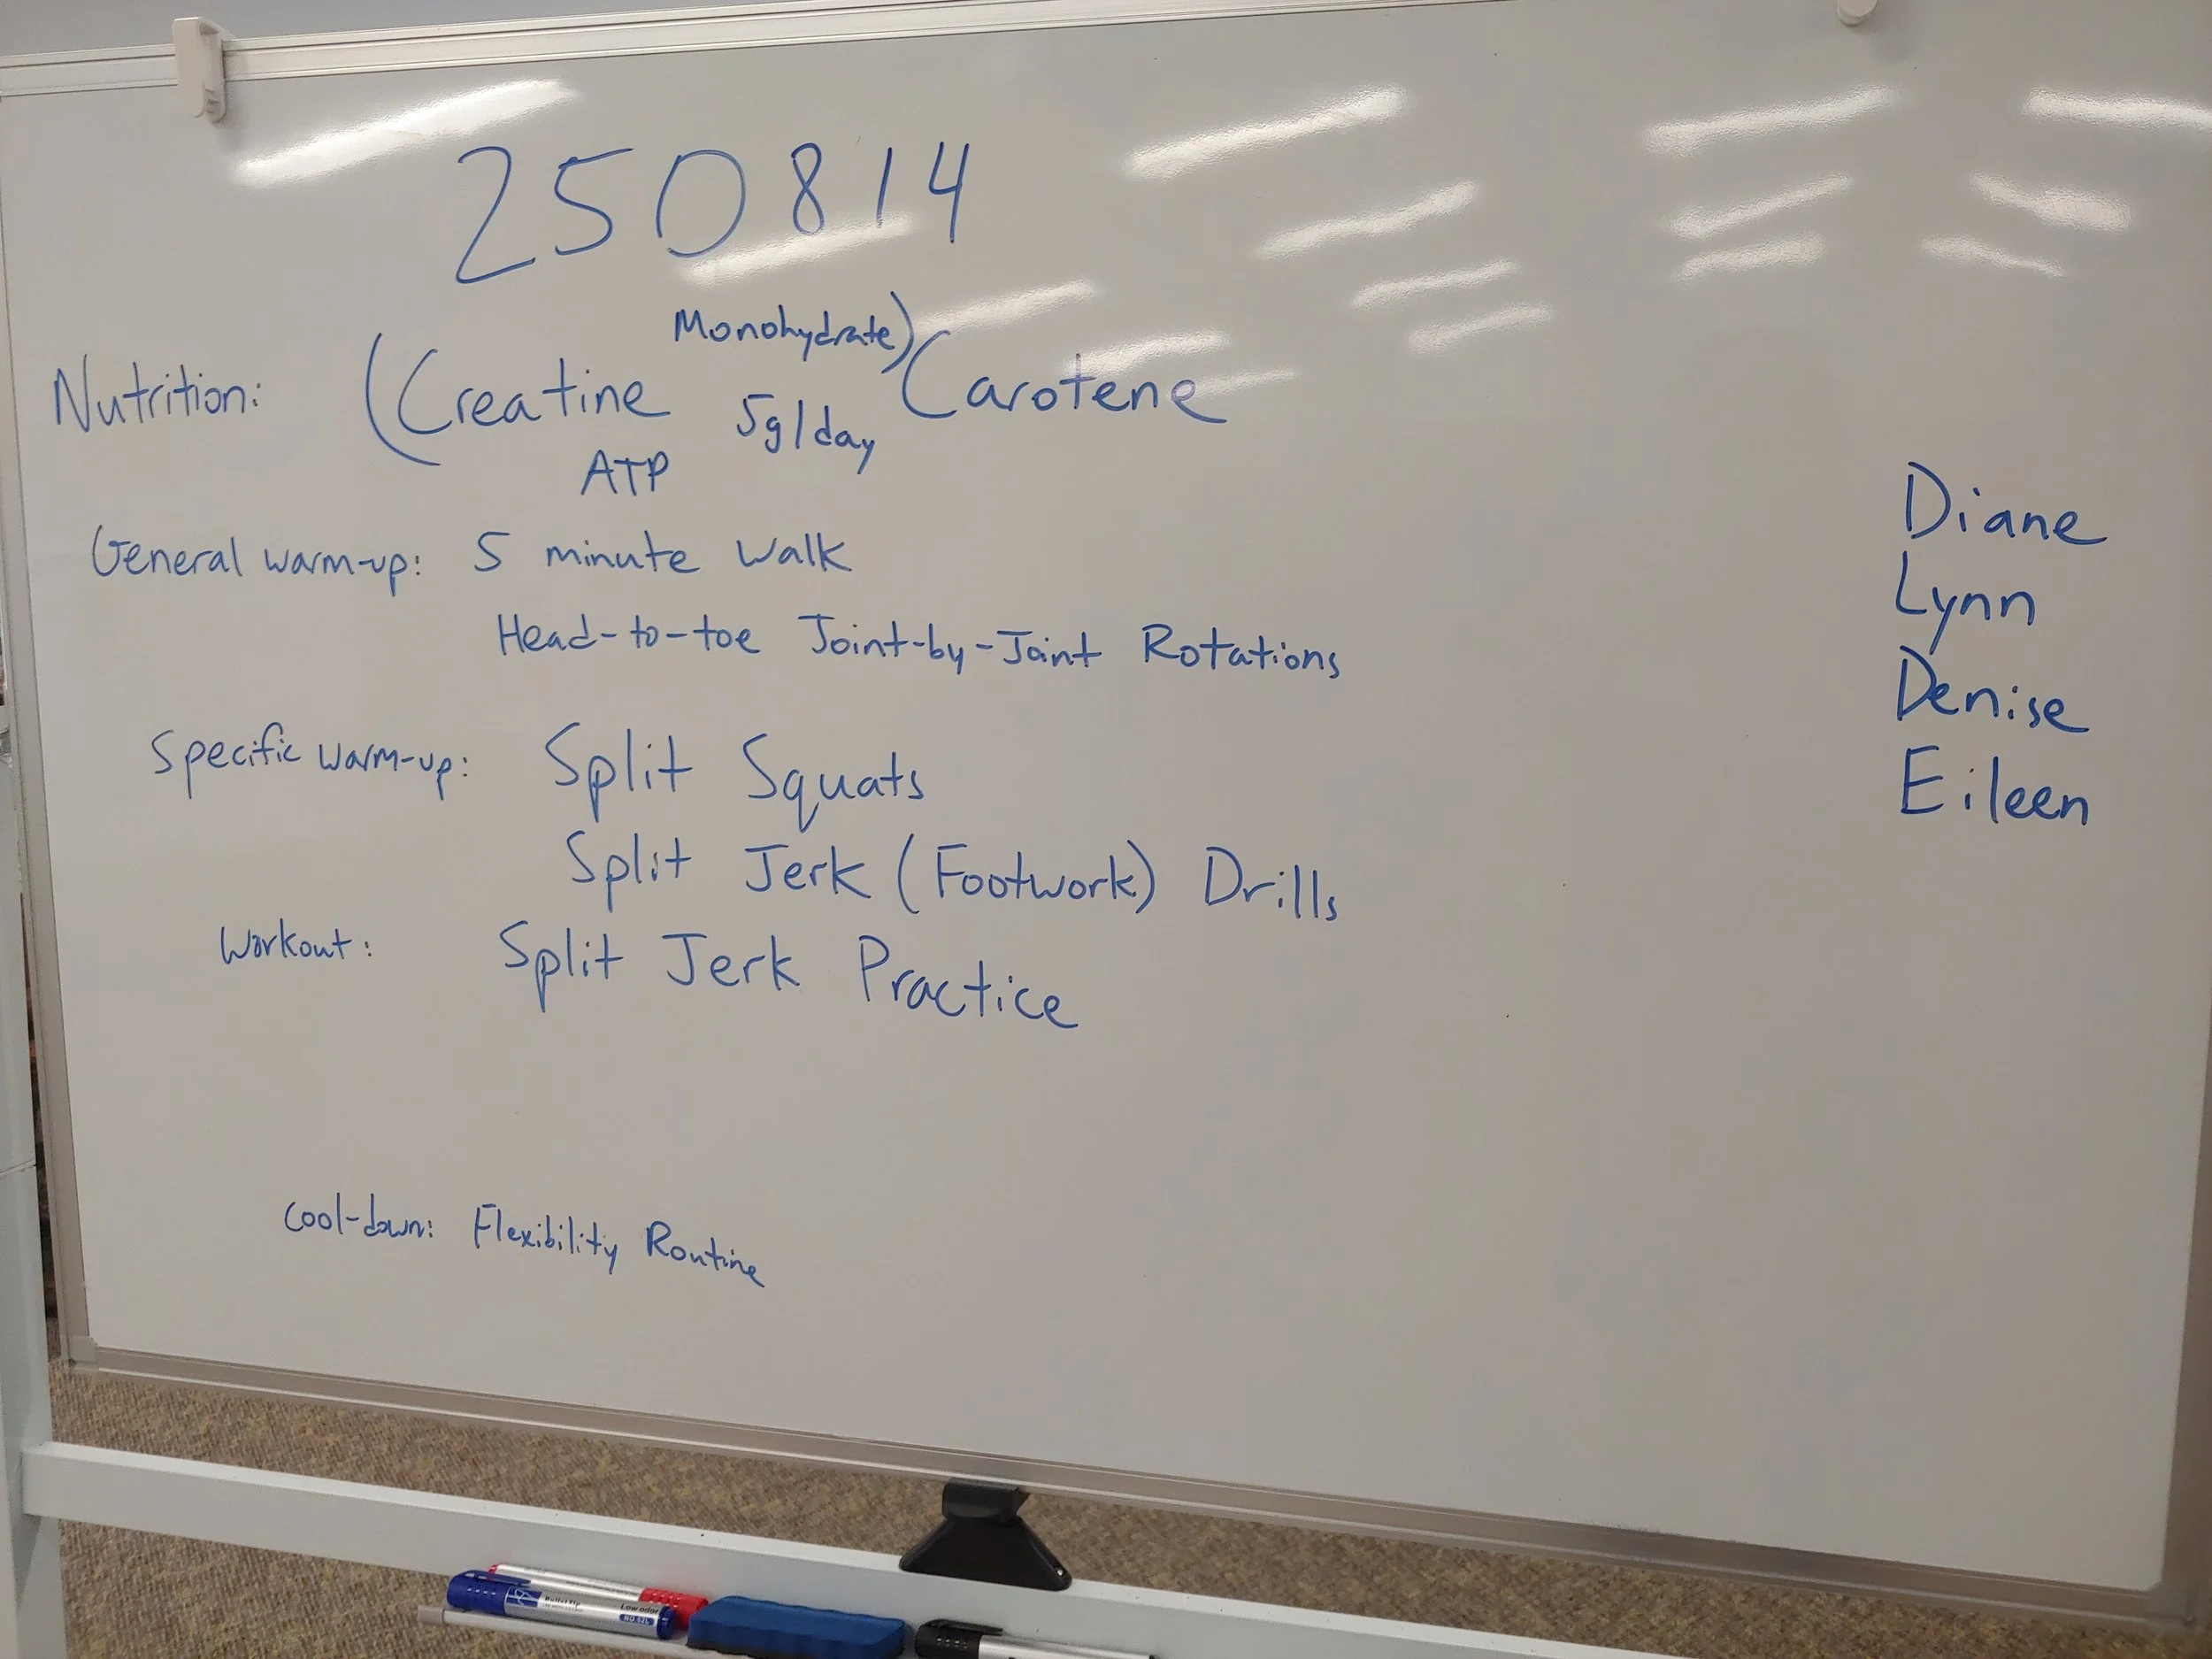 250814
Monohydrate)
Nutrition: (Creatine Carotene
5g/day
ATP
General warm-up: 5 minute walk
Head-to-toe Joint-by-Joint Rotations
Specific warm-up: Split Squats
Split Jerk (Footwork) Drills
Workout: Split Jerk Practice
Cool-down: Flexibility Routine
Diane
Lynn
Denise
Eileen
Bullet Tip
Low odor